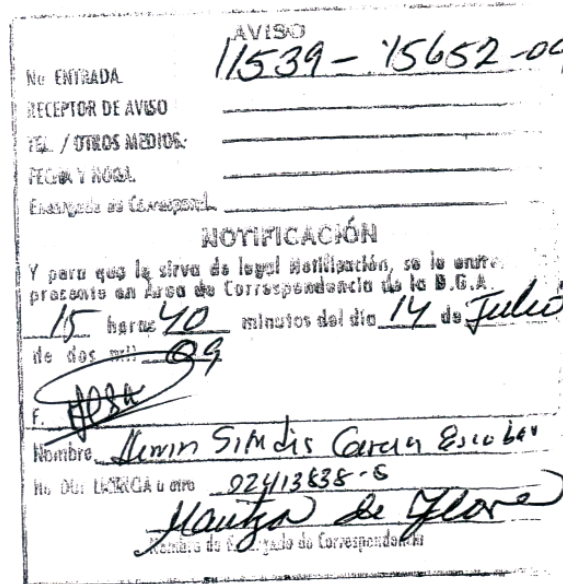 AVISO
No ENTRADA 11539 - 15652 -09
RECEPTOR DE AVISO
TEL. / OTROS MEDIOS:
FECHA Y HORA.
Encargado de Correspond.
NOTIFICACIÓN
Y para que le sirva de legal Notificación, se le entre
presente en Área de Correspondencia de la D.G.A.
15 horas 40 minutos del día 14 de Julio
de dos mil 09
F.
Nombre Garcia Escobar
No DUI, LICENCIA u otro 02413838-8
de Flores
Nombre de Encargado de Correspondencia